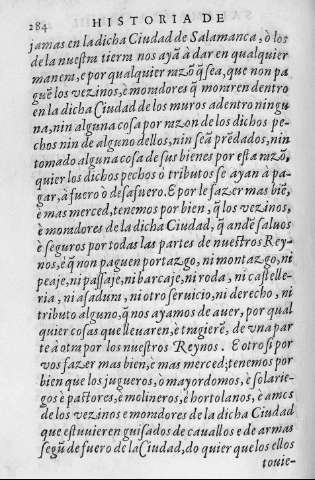 284 HISTORIA DE
jamas en la dicha Ciudad de Salamanca, ò los
de la nuestra tierra nos ayã à dar en qualquier
manera, e por qualquier razõ q̃ sea, que non pa
guẽ los vezinos, e moradores q̃ moraren dentro
en la dicha Ciudad de los muros adentro ningu
na, nin alguna cosa por razon de los dichos pe-
chos nin de alguno dellos, nin seã prẽdados, nin
tomado alguna cosa de sus bienes por esta razõ,
quier los dichos pechos ò tributos se ayan à pa-
gar, à fuero ò desafuero. E por le fazer mas biẽ,
e mas merced, tenemos por bien, q̃ los vezinos,
e moradores de la dicha Ciudad, q̃ andẽ saluos
è seguros por todas las partes de nuestros Rey-
nos, è q̃ non paguen portazgo, ni montazgo, ni
peaje, ni passaje, ni barcaje, ni roda, ni castelle-
ria, ni asadura, ni otro servicio, ni derecho, ni
tributo alguno, q̃ nos ayamos de auer, por qual
quier cosas que lleuaren, è traxierẽ, de vna par
te à otra por los nuestros Reynos. E otro si por
vos fazer mas bien, è mas merced; tenemos por
bien que los jugueros, ò mayordomos, è solarie-
gos è pastores, è molineros, è hortolanos, è amos
de los vezinos e moradores de la dicha Ciudad
que estuvieren guisados de cauallos e de armas
segũ de fuero de la Ciudad, do quier que los ellos
touie-